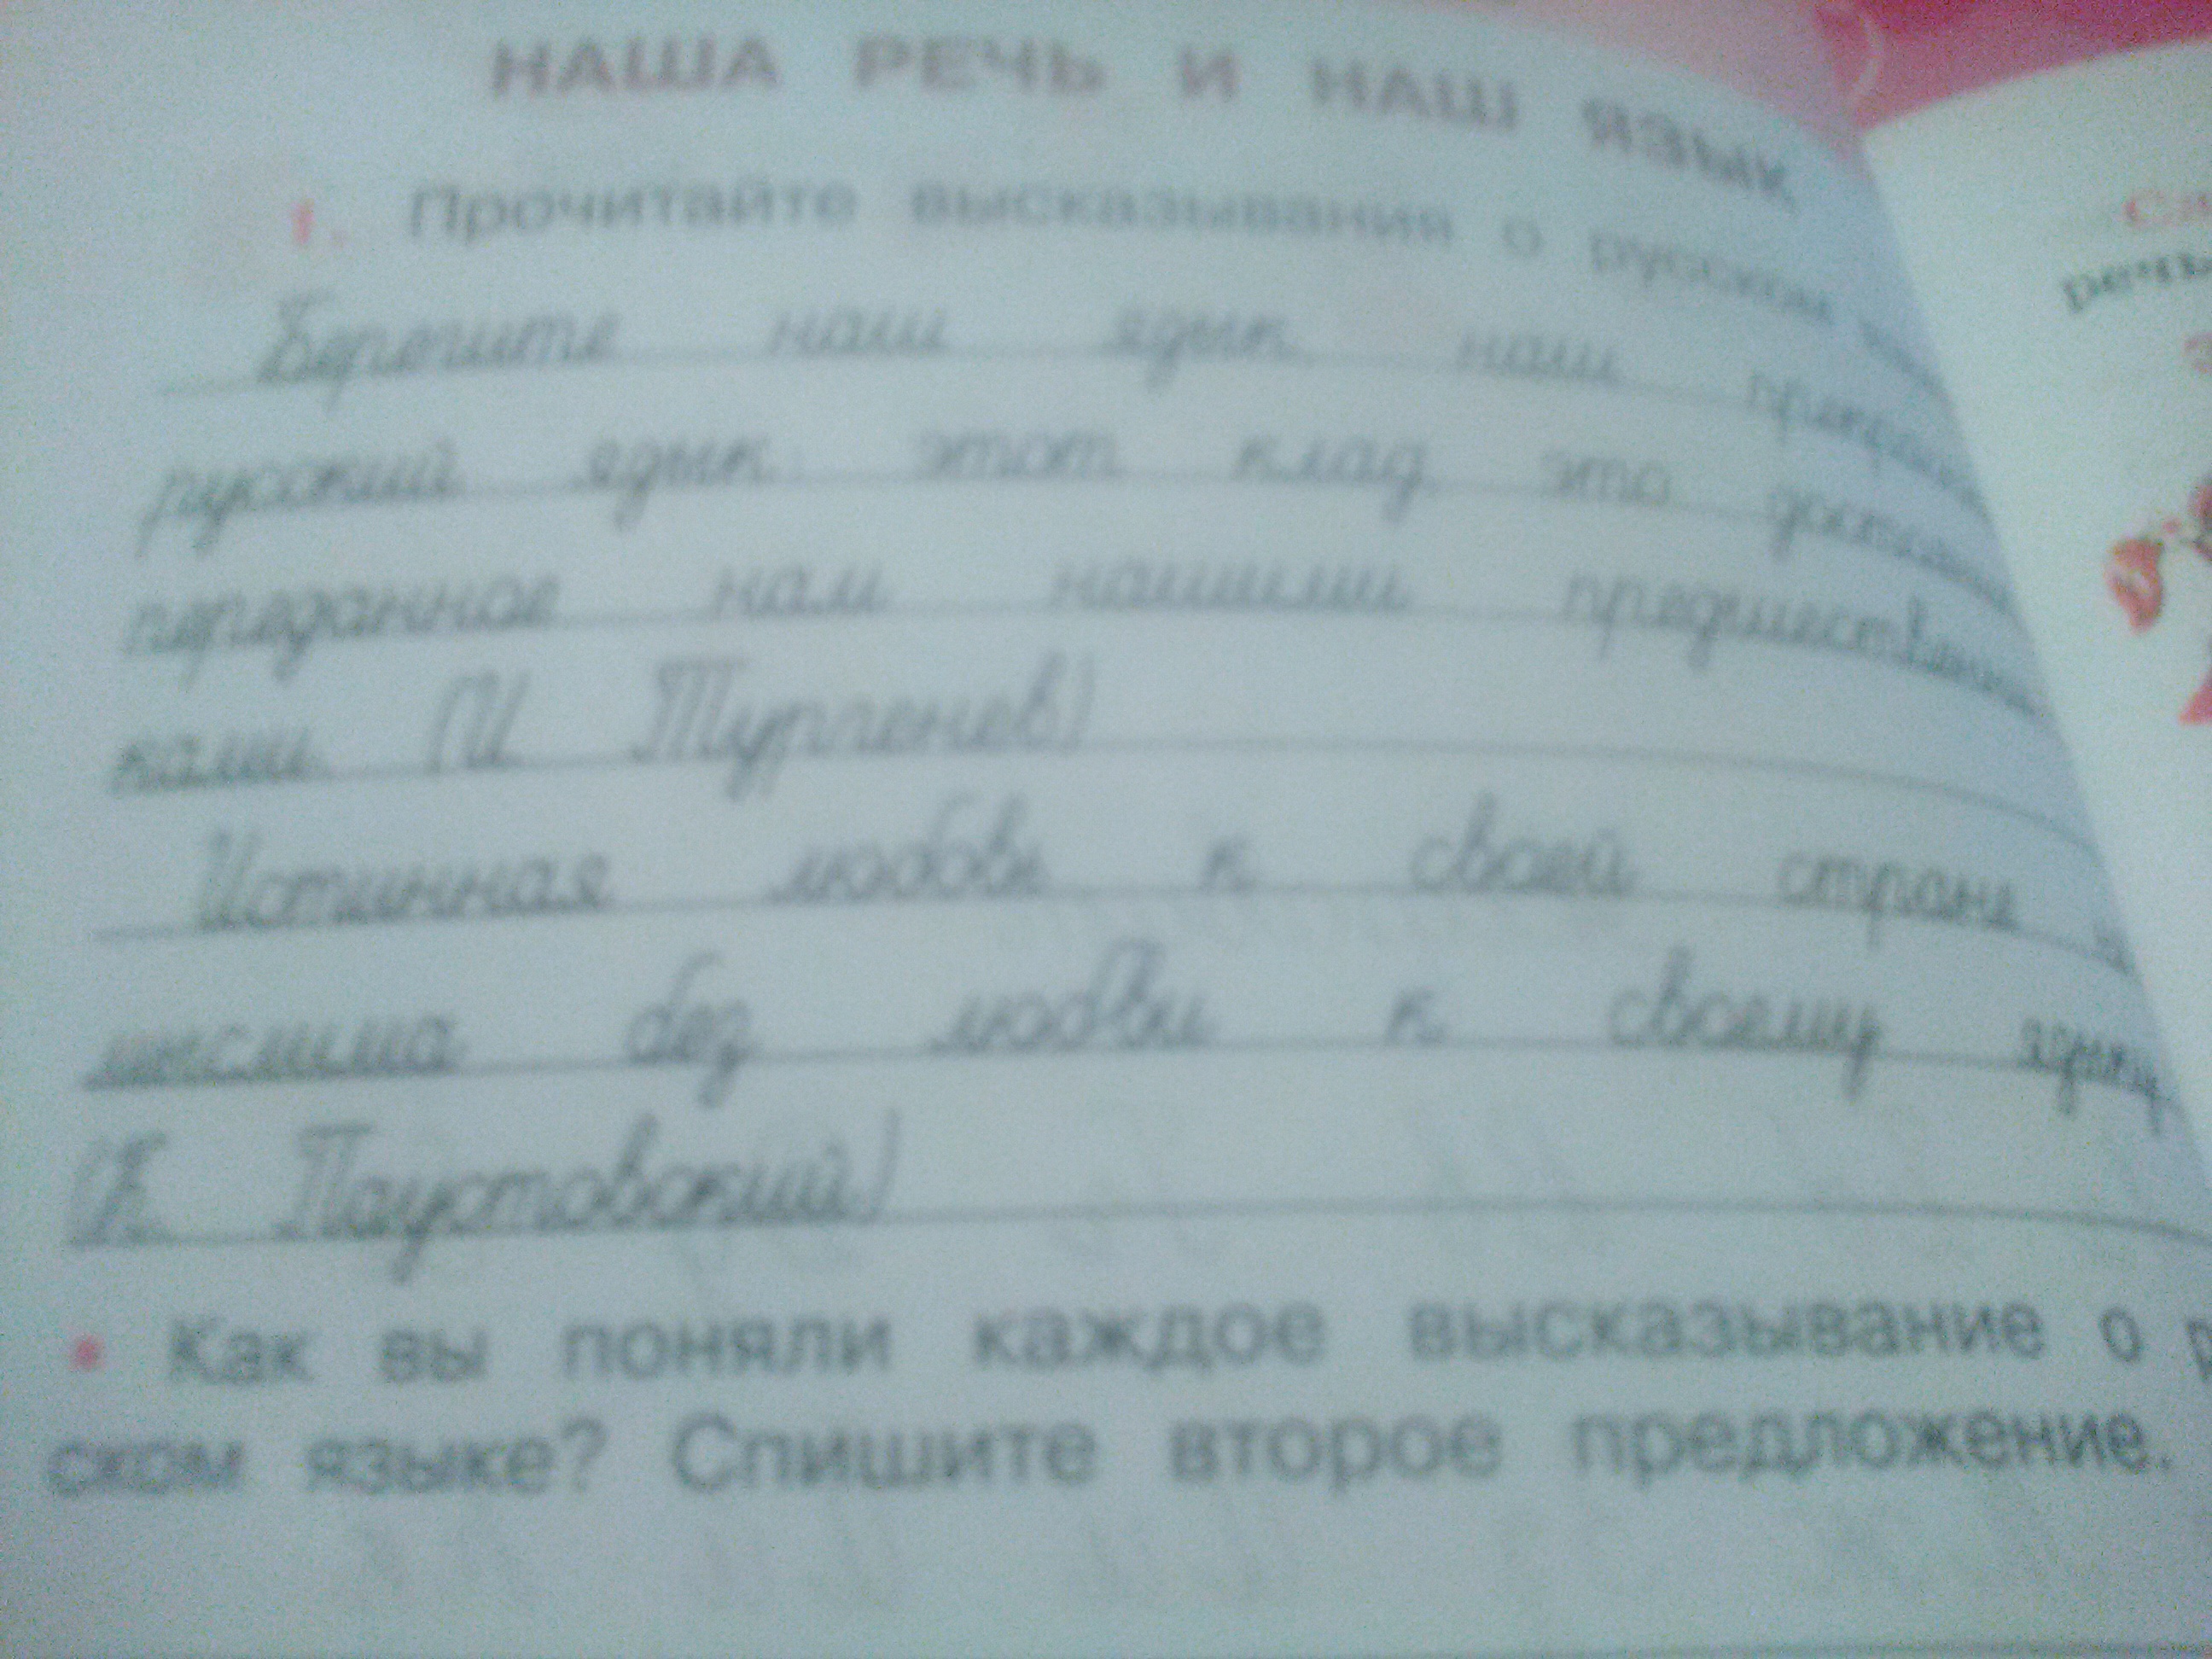 НАША РЕЧЬ И НАШ ЯЗЫК
1. Прочитайте высказывания о русском
Берегите наш язык, наш прекрасный
русский язык, этот клад, это достояние,
переданное нам нашими предшественни-
ками. (И. Тургенев)
Истинная любовь к своей стране не-
мыслима без любви к своему языку.
(К. Паустовский)
• Как вы поняли каждое высказывание о р
ском языке? Спишите второе предложение.
речь